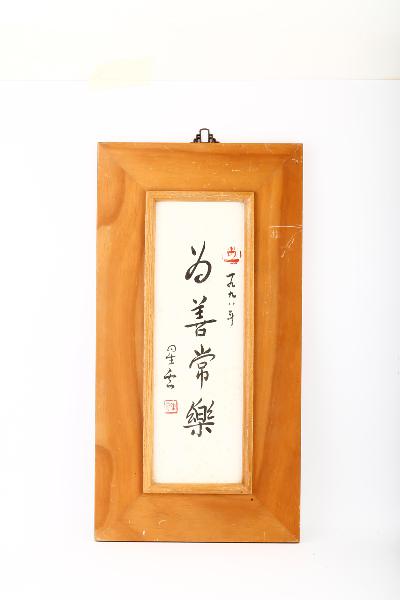 一九九八年
為善常樂
星雲